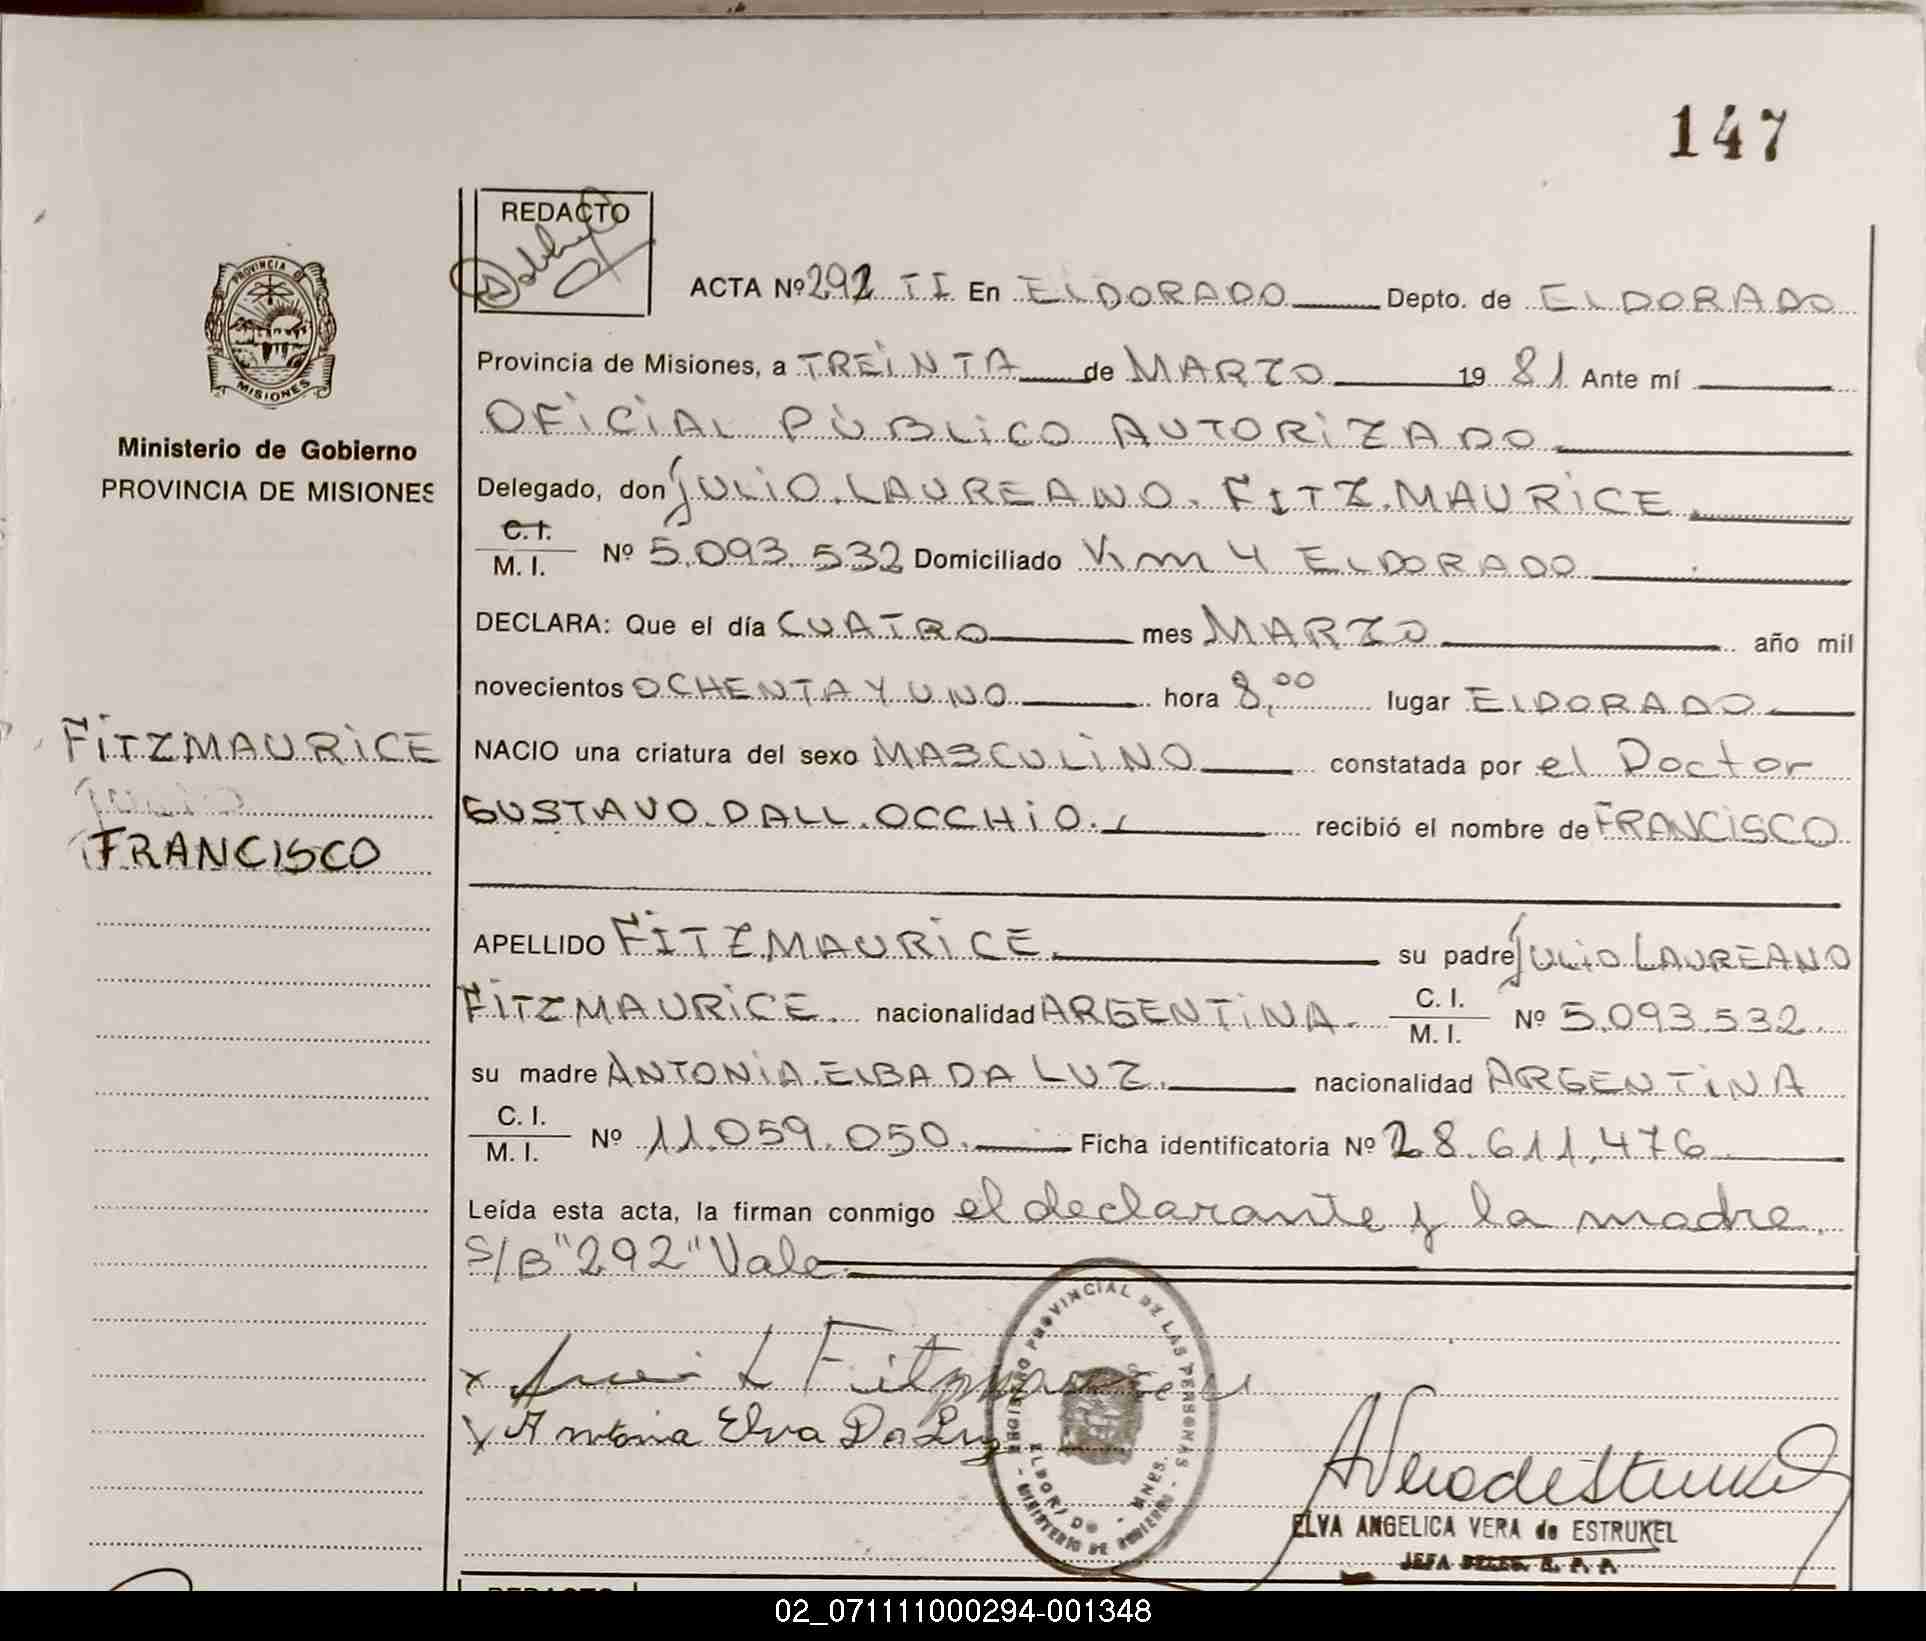 147
REDACTO
ACTA Nº 292 TI En ELDORADO Depto. de ELDORADO
PROVINCIA D
MISIONES
Ministerio de Gobierno
PROVINCIA DE MISIONES
Provincia de Misiones, a TREINTA de MARZO 19 81 Ante mí
OFICIAL PÚBLICO AUTORIZADO
Delegado, don JULIO LAUREANO FITZ MAURICE
C. I. M. I. Nº 5.093.532 Domiciliado Km 4 ELDORADO
DECLARA: Que el día CUATRO mes MARZO año mil
novecientos OCHENTA Y UNO hora 8,00 lugar ELDORADO
FITZMAURICE
NACIO una criatura del sexo MASCULINO constatada por el Doctor
GUSTAVO DALL OCCHIO. recibió el nombre de FRANCISCO
FRANCISCO
APELLIDO FITZMAURICE su padre JULIO LAUREANO
FITZMAURICE. nacionalidad ARGENTINA. C. I. M. I. Nº 5.093.532
su madre ANTONIA ELBA DA LUZ. nacionalidad ARGENTINA
C. I. M. I. Nº 11.059.050. Ficha identificatoria Nº 28.611.476
Leída esta acta, la firman conmigo el declarante y la madre.
S/B "292" Vale
x L Fitzmaurice
x Antonia Elva Da Luz
REGISTRO PROVINCIAL DE LAS PERSONAS
ELDORADO - MNES.
- MINISTERIO DE GOBIERNO -
ELVA ANGELICA VERA de ESTRUKEL
JEFA DELEG. R. P. P.
REDACTO
02_071111000294-001348